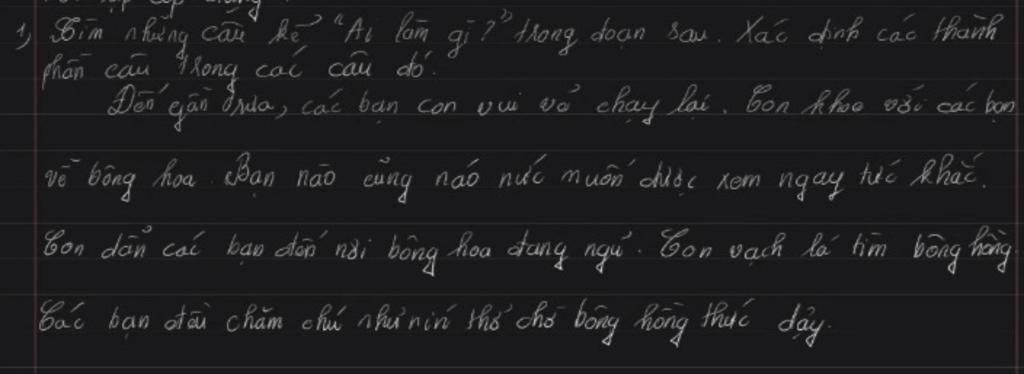 1) Tìm những câu kể "Ai làm gì?" trong đoạn sau. Xác định các thành
phần câu trong các câu đó.
Đến gần trưa, các bạn con vui vẻ chạy lại. Con khoe với các bạn
về bông hoa. Bạn nào cũng náo nức muốn được xem ngay tức khắc.
Con dẫn các bạn đến nơi bông hoa đang ngủ. Con vạch lá tìm bông hồng.
Các bạn đều chăm chú như nín thở chờ bông hồng thức dậy.